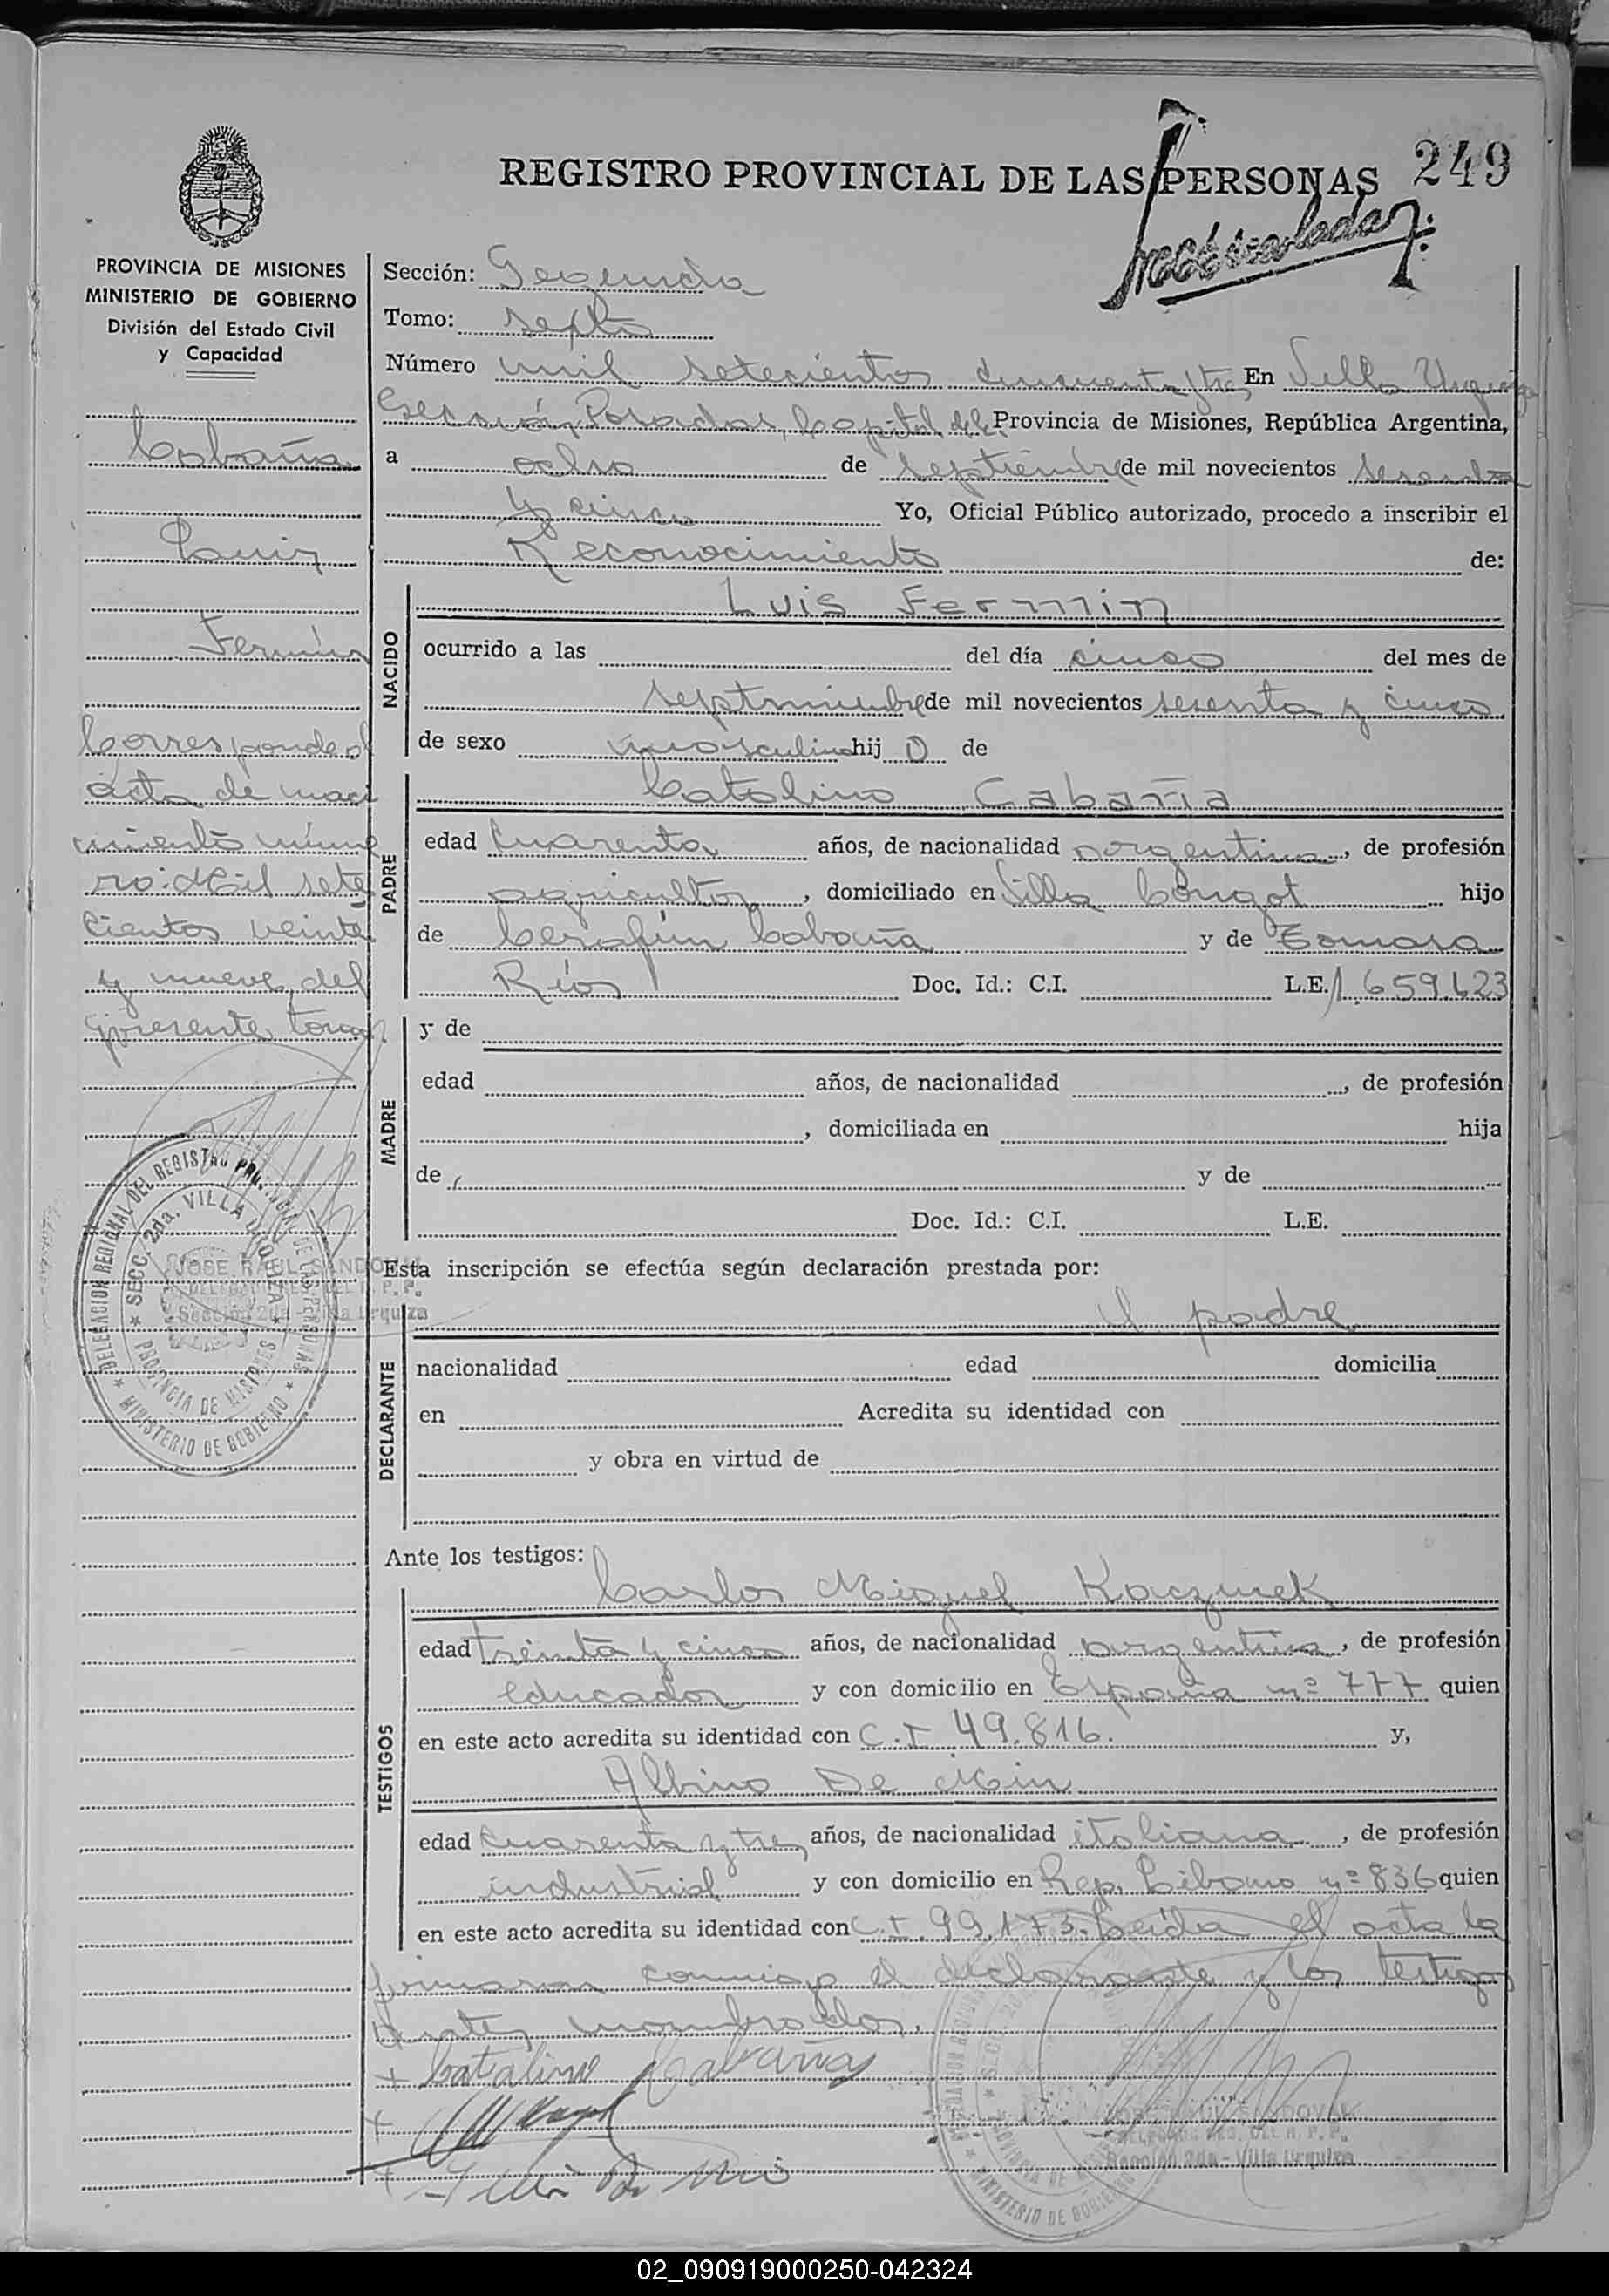 REGISTRO PROVINCIAL DE LAS PERSONAS 249
PROVINCIA DE MISIONES
MINISTERIO DE GOBIERNO
División del Estado Civil
y Capacidad
Cabaña
Luis
Fermín
Corresponde al
acta de naci
miento núme
ro: Mil sete
cientos veinte
y nueve del
presente tomo
DELEGACION REGIONAL DEL REGISTRO PROVINCIAL DE LAS PERSONAS
SECC. 2da. VILLA URQUIZA
PROVINCIA DE MISIONES
MINISTERIO DE GOBIERNO
JOSE RAUL SANDOVAL
Sección 2da - Villa Urquiza
Sección: Segunda
Tomo: septo
Número mil setecientos cincuenta En Villa Urquiza
Sección, Posadas, Capital de la Provincia de Misiones, República Argentina,
a ocho de septiembre de mil novecientos sesenta
y cinco Yo, Oficial Público autorizado, procedo a inscribir el
Reconocimiento de:
NACIDO
Luis Fermin
ocurrido a las del día cinco del mes de
septiembre de mil novecientos sesenta y cinco
de sexo masculino hij o de
PADRE
Catalino Cabaña
edad cuarenta años, de nacionalidad argentina, de profesión
agricultor, domiciliado en Villa Bongot hijo
de Cerafín Cabaña y de Tomasa
Ríos Doc. Id.: C.I. L.E. 1.659.623
MADRE
y de
edad años, de nacionalidad , de profesión
, domiciliada en hija
de y de
Doc. Id.: C.I. L.E.
Esta inscripción se efectúa según declaración prestada por:
DECLARANTE
el padre
nacionalidad edad domicilia
en Acredita su identidad con
y obra en virtud de
Ante los testigos:
TESTIGOS
Carlos Miguel Kaczurek
edad treinta y cinco años, de nacionalidad argentina, de profesión
educador y con domicilio en España nº 777 quien
en este acto acredita su identidad con C.I 49.816. y,
Albino De Min
edad cuarenta y tres años, de nacionalidad italiana, de profesión
industrial y con domicilio en Rep. Libano nº 836 quien
en este acto acredita su identidad con C.I. 99.173. Leída el acta la
firmaron conmigo el declarante y los testigos
antes nombrados.
Catalino Cabaña
Sección 2da - Villa Urquiza
02_090919000250-042324